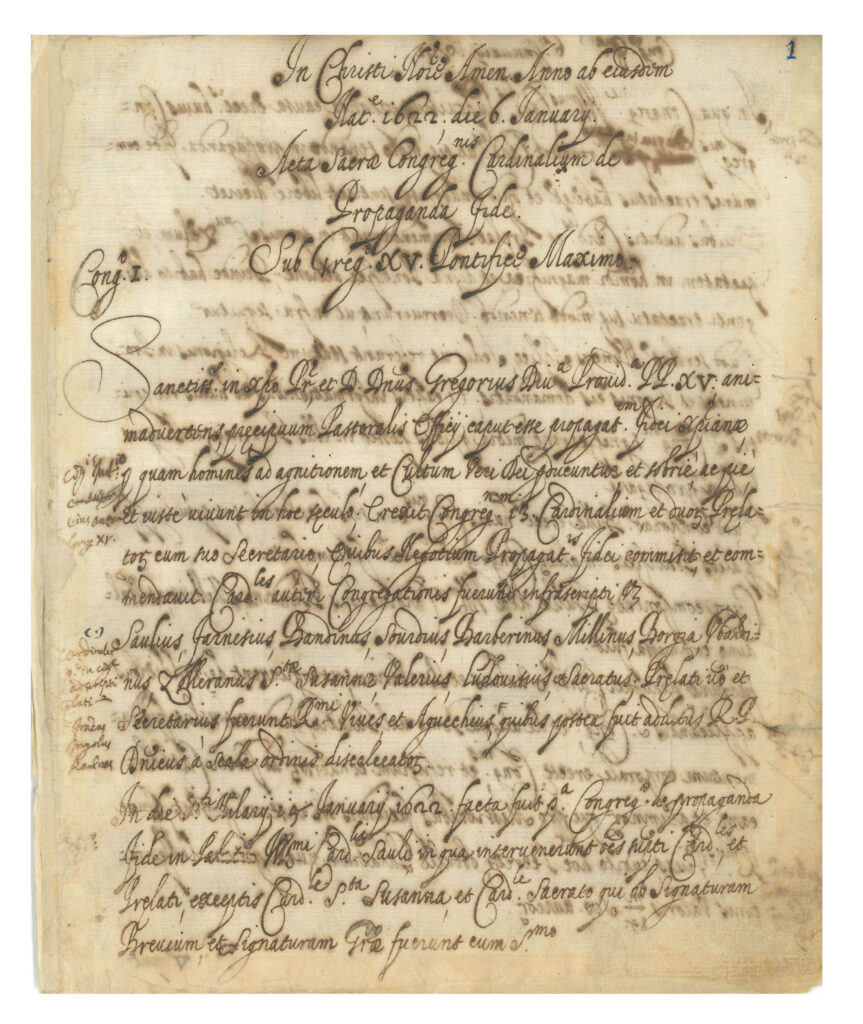 1
In Christi Noīe Amen Anno ab eiusdem
Nat.e 1622. die 6. January.
Acta Sacræ Congreg.nis Cardinalium de
Propaganda Fide.
Sub Greg.o XV. Pontifice Maximo.
Cong.o I.
Sanctiss. in Xpo Pr et D. Dnus Gregorius Diu.a Prouid.a PP. XV. ani=
maduertens precipuum Pastoralis Officij caput esse propagat.em fidei Xpianæ
q quam homines ad agnitionem, et Cultum Veri Dei et sobrie ac pie
et iuste viuunt in hoc seculo. Erexit Congreg.nem 13. Cardinalium et duoꝝ Prela=
toꝝ cum suo Secretario, Quibus Negotium Propagat.is fidei commisit et com=
mendauit. Card.les autem Congregationis fuerunt infrascripti
Saulius, Farnesius, Bandinus, Sourdius, Barberinus, Millinus, Borgia, Vbaldi=
nus, Zolleranus, S.tæ Susannæ, Valerius, Ludouisius, Sacratus. Prelati uō, et
Secretarius fuerunt R.mi Viues, et Aguechius quibus postea fuit additus R. P.
Dnicus à Scala ordinis discalceatoꝝ
In die S.ti Hilary 14 January 1622 facta fuit p.a Congreg.o de propaganda
Fide in Ill.mi Card.lis Sauli in qua interuenerunt Card.les et
Prelati, exceptis Card.le S.ta Susanna, et Card.le Sacrato qui ob Signaturam
Breuium, et Signaturam Græ fuerunt cum S.mo